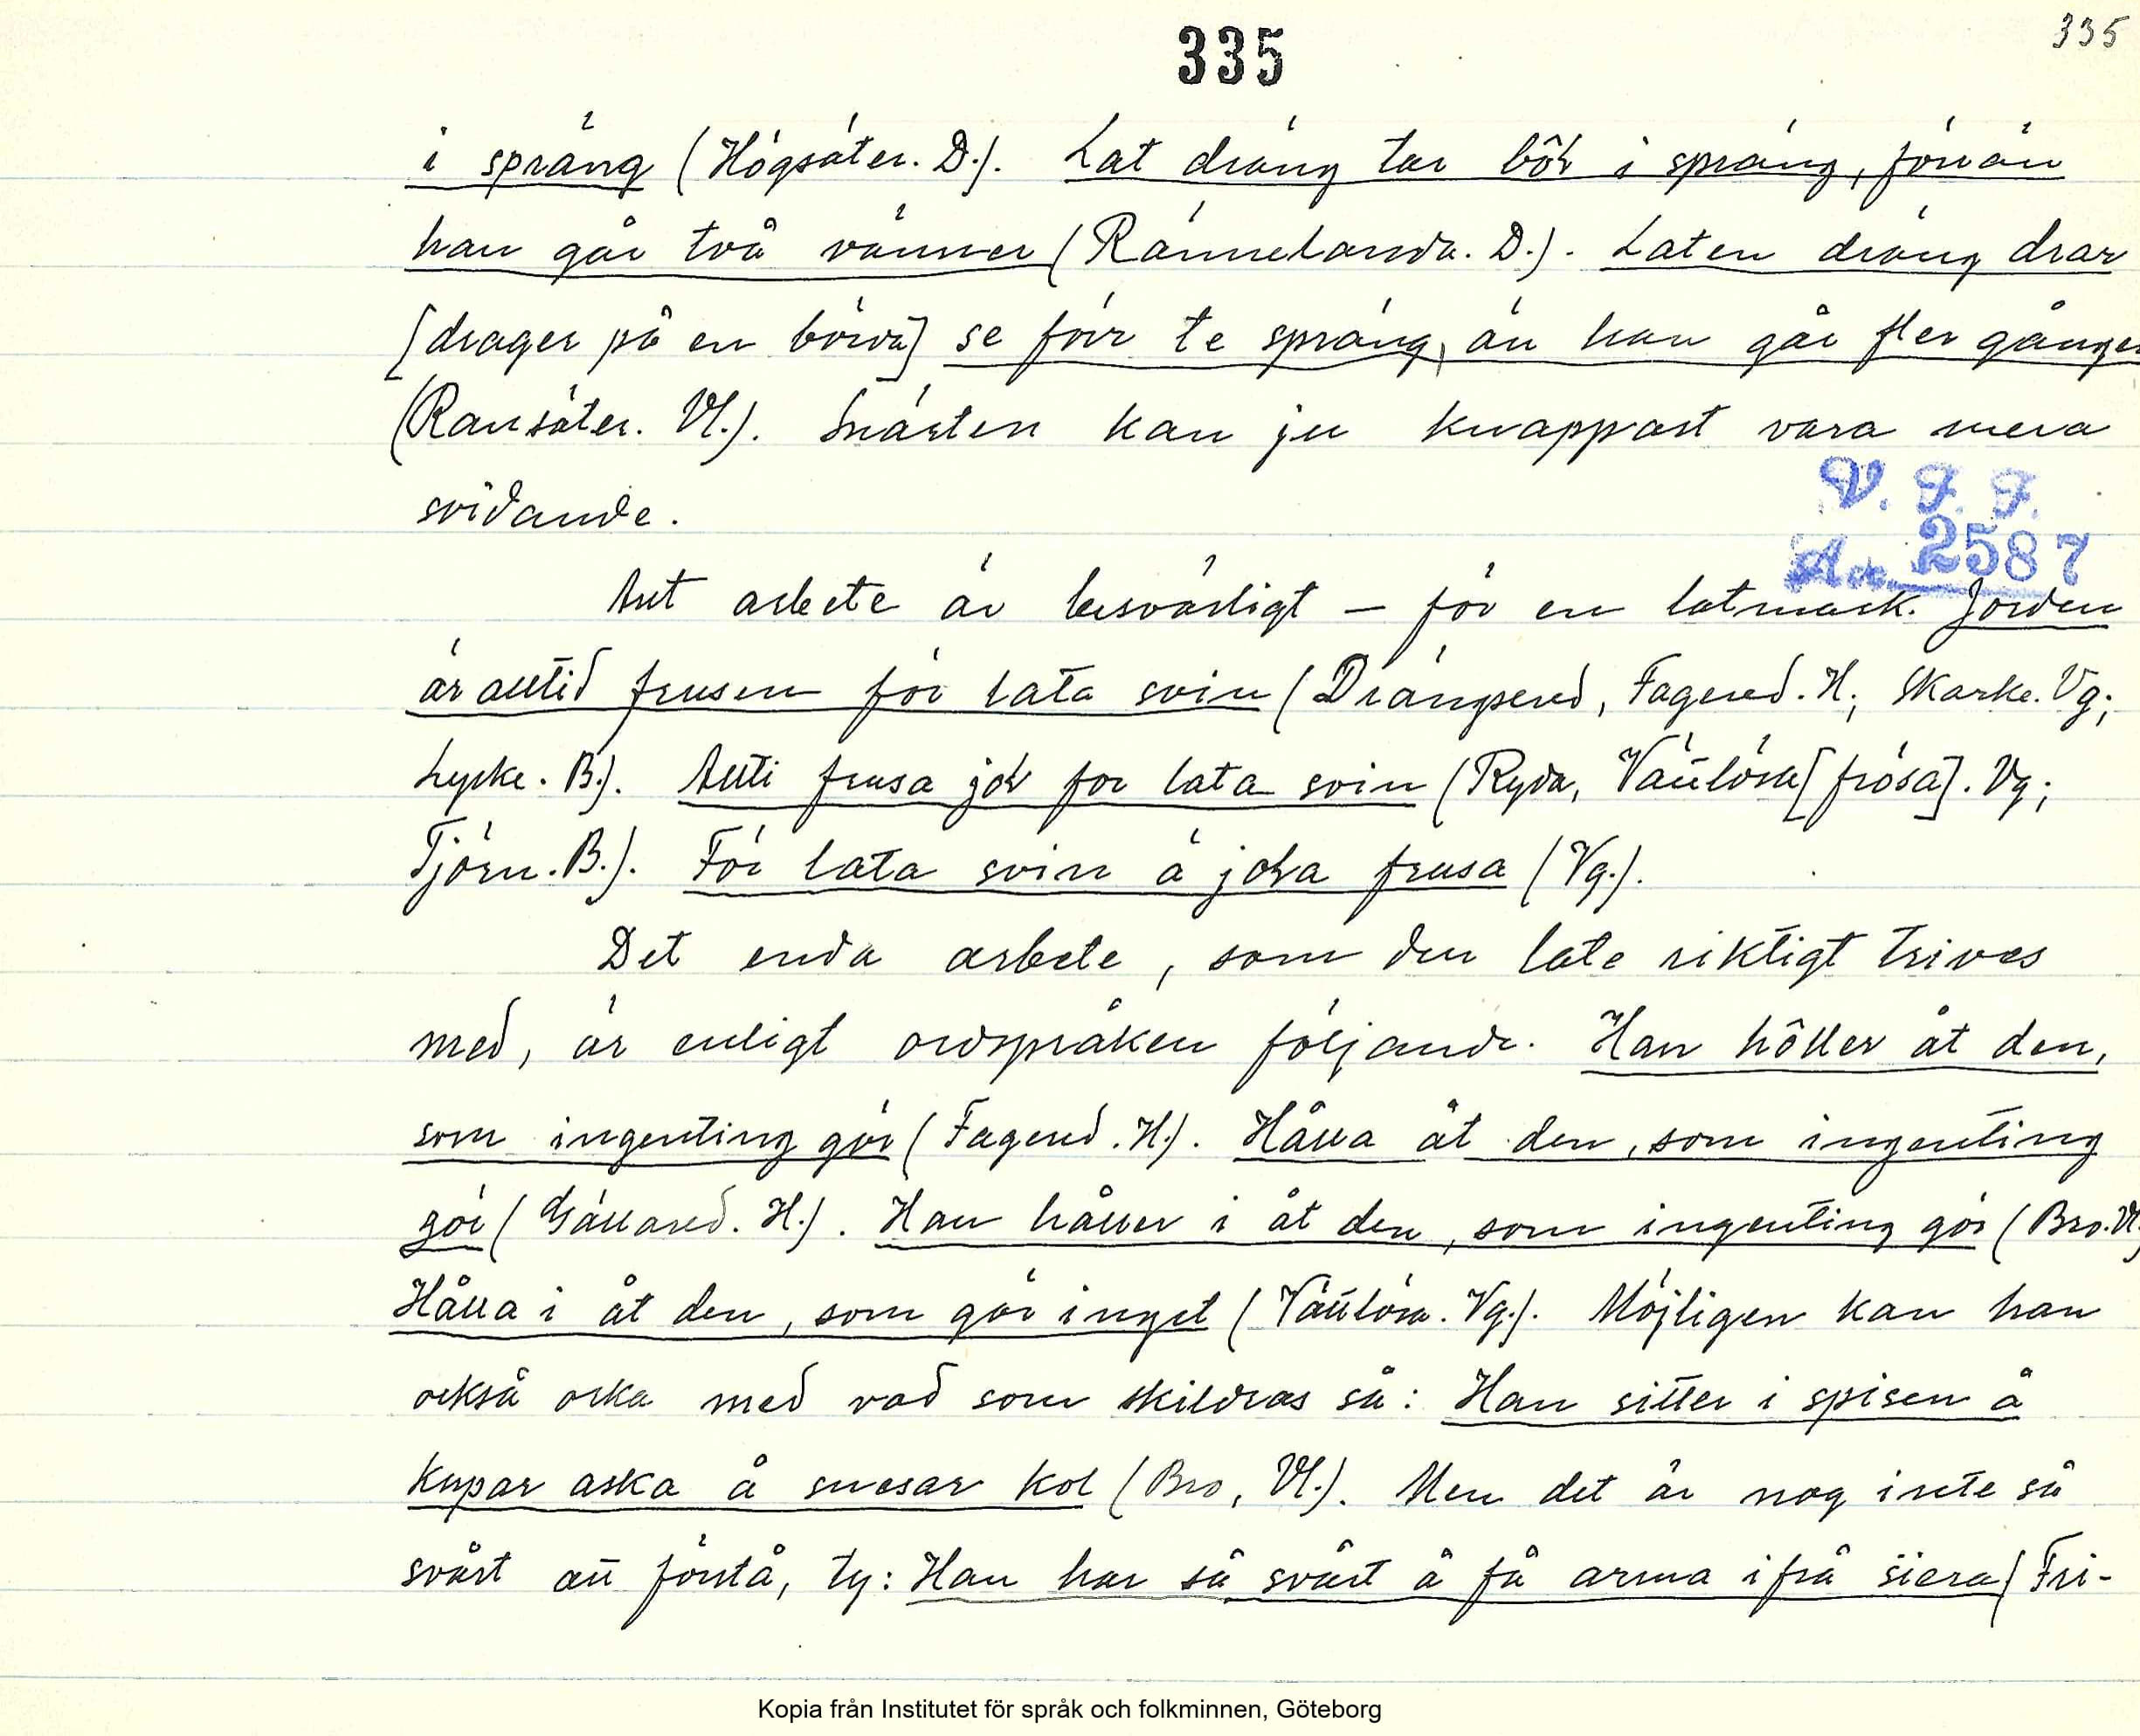 335
335
i spräng (Högsäter. D.). Lat dräng tar bôL i spräng, förrän
han går två vänner (Rännelanda. D.). Laten dräng drar
[drager på en börda] se förr te spräng, än han går fler gånger
(Ransäter. Vl.). Snärten kan ju knappast vara mera
svidande.
V. F. F.
Acc. 2587
Allt arbete är besvärligt – för en latmask. Jorden
är alltid frusen för lata svin (Drängsered, Fagered. H.; Skarke. Vg;
Lycke. B.). Allti frusa joL för lata svin (Ryda, Vänlösa [frösa]. Vg;
Tjörn. B.). För lata svin ä joLa frusa (Vg.).
Det enda arbete, som den late riktigt trives
med, är enligt ordspråken följande. Han hôller åt den,
som ingenting gör (Fagered. H.). Hålla åt den, som ingenting
gör (Gällared. H.). Han håller i åt den, som ingenting gör (Bro. Vl.)
Hålla i åt den, som gör inget (Vänlösa. Vg.). Möjligen kan han
också orka med vad som skildras så: Han sitter i spisen å
kupar aska å snesar kol (Bro, Vl.). Men det är nog inte så
svårt att förstå, ty: Han har så svårt å få arma ifrå siera (Fri-
Kopia från Institutet för språk och folkminnen, Göteborg